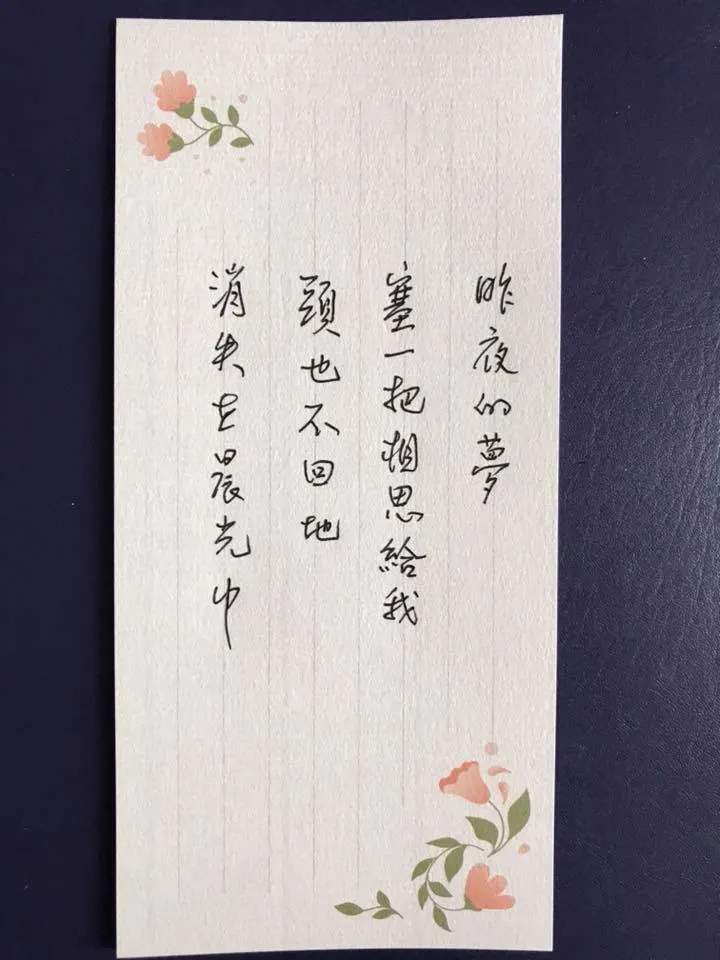 昨夜的夢
塞一把相思給我
頭也不回地
消失在晨光中